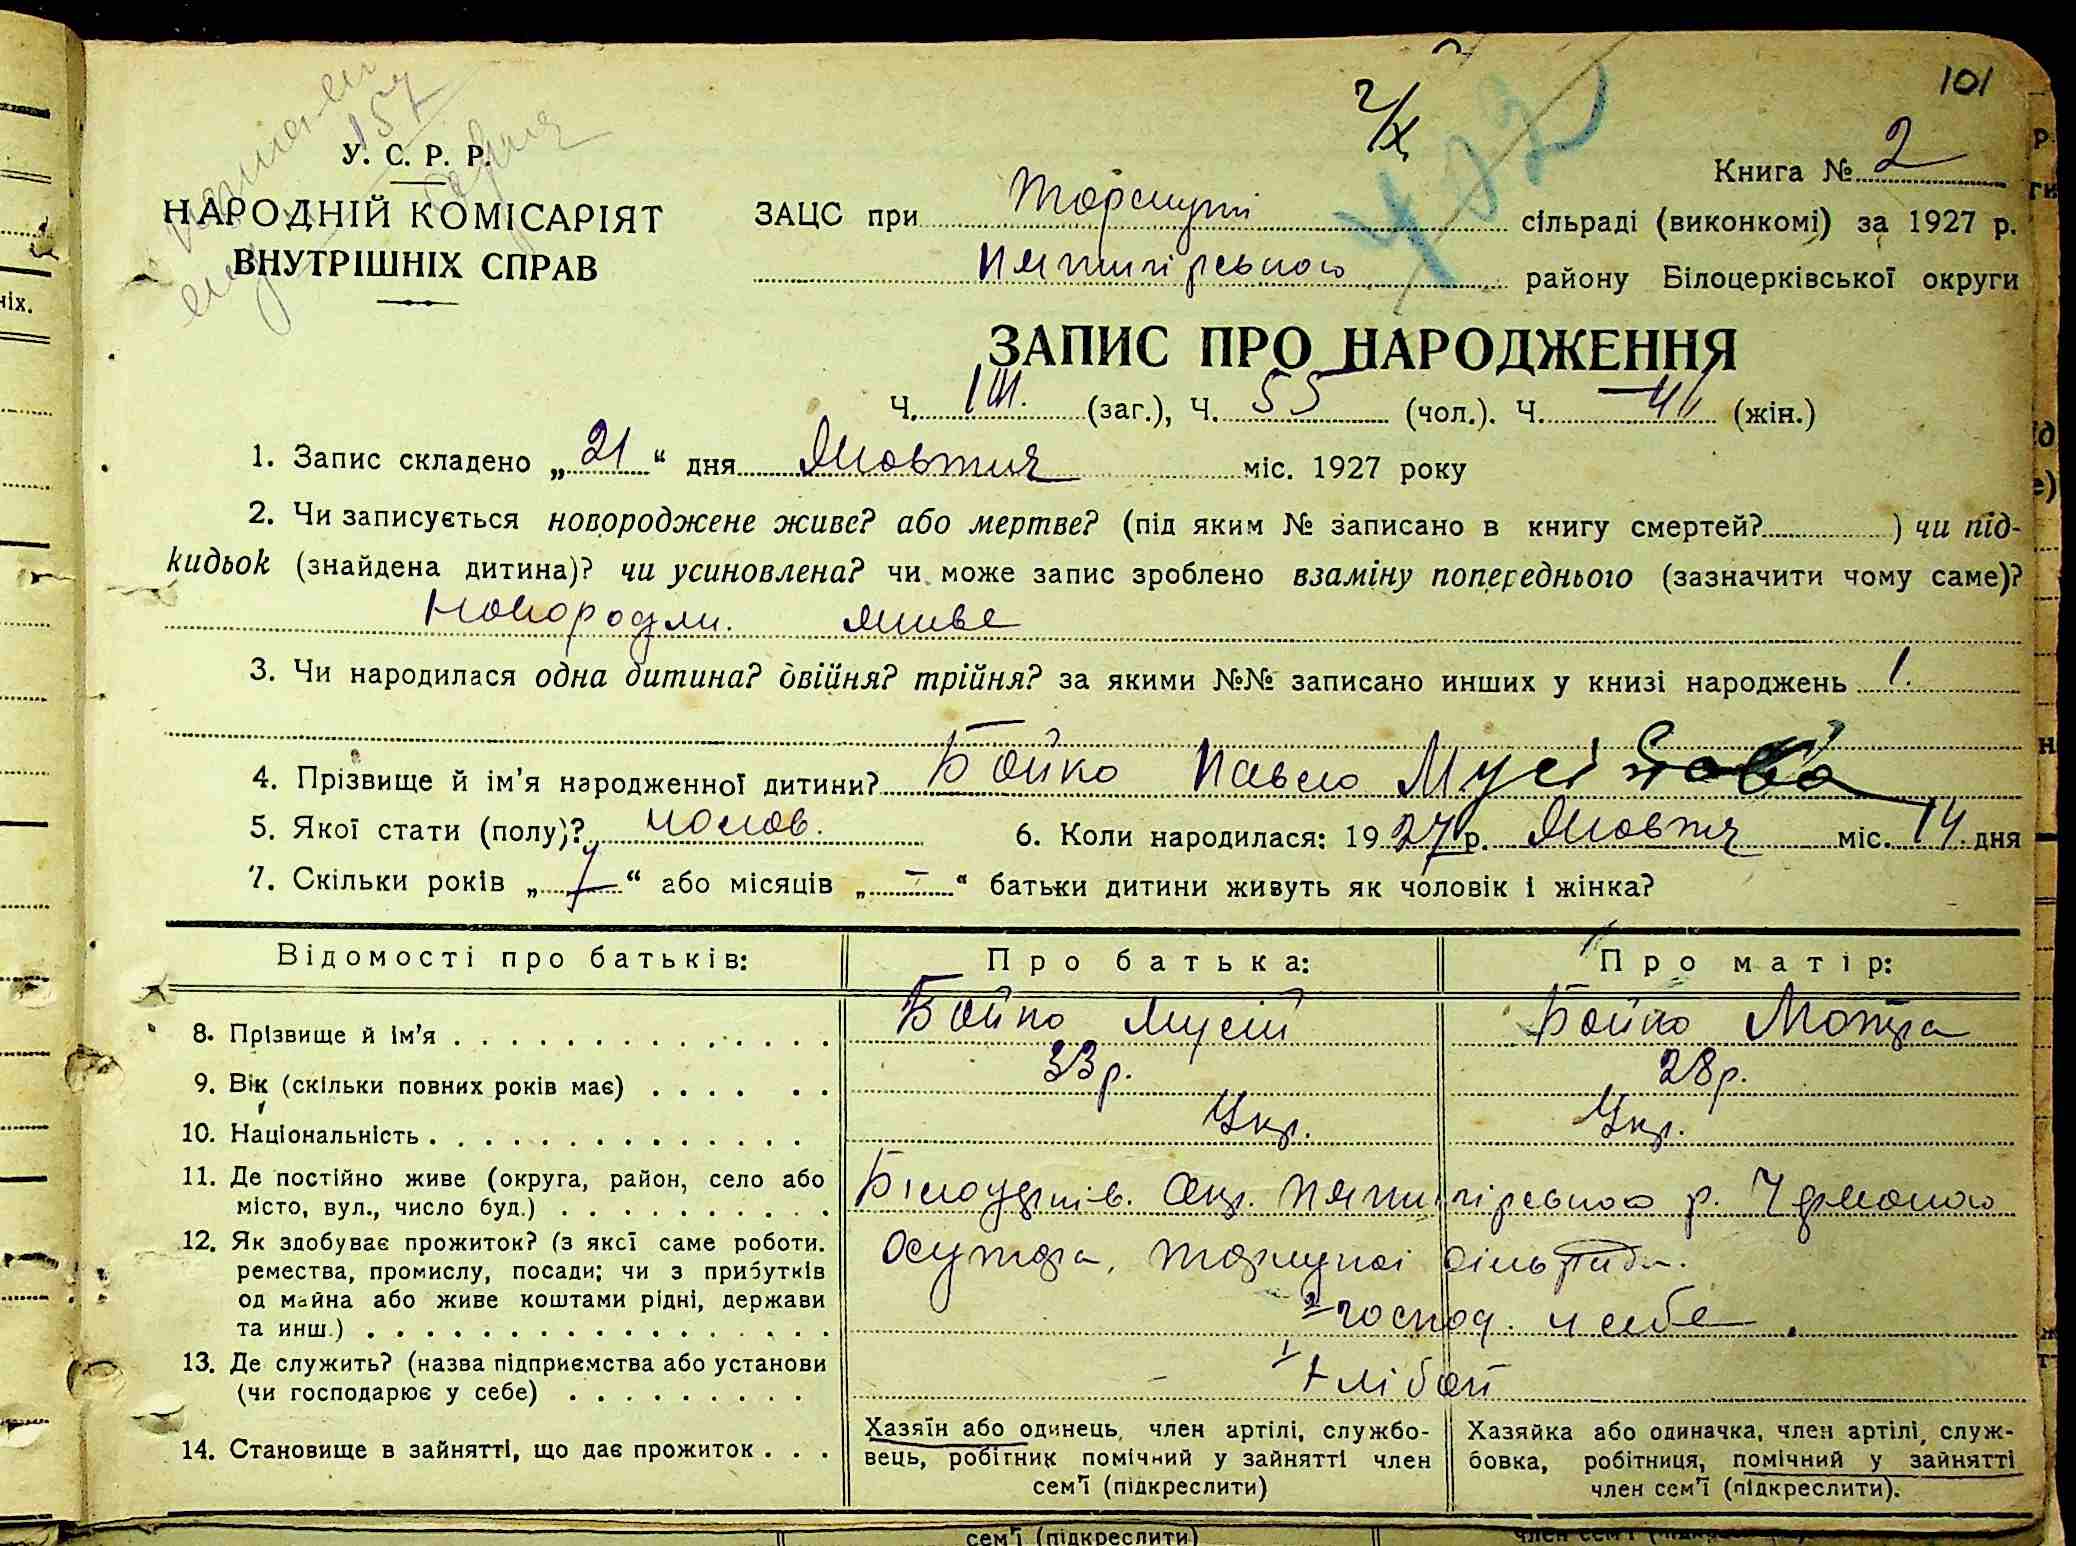 101
У. С. Р. Р.
НАРОДНІЙ КОМІСАРІЯТ
ВНУТРІШНІХ СПРАВ
Книга № 2
ЗАЦС при сільраді (виконкомі) за 1927 р.
Пятигірського району Білоцерківської округи
ЗАПИС ПРО НАРОДЖЕННЯ
Ч. (заг.), Ч. 55 (чол.). Ч. (жін.)
1. Запис складено „21“ дня Жовтня міс. 1927 року
2. Чи записується новороджене живе? або мертве? (під яким № записано в книгу смертей? ) чи під-
кидьок (знайдена дитина)? чи усиновлена? чи може запис зроблено взаміну попереднього (зазначити чому саме)?
живе
3. Чи народилася одна дитина? двійня? трійня? за якими №№ записано инших у книзі народжень 1.
4. Прізвище й ім’я народженної дитини? Бойко Павло
5. Якої стати (полу)? чолов. 6. Коли народилася: 1927 р. Жовтня міс. 14 дня
7. Скільки років „7“ або місяців „–“ батьки дитини живуть як чоловік і жінка?
Відомості про батьків: Про батька: Про матір:
8. Прізвище й ім’я Бойко Мусій Бойко Мотря
9. Вік (скільки повних років має) 33 р. 28 р.
10. Національність Укр. Укр.
11. Де постійно живе (округа, район, село або
місто, вул., число буд.) Окр. Пятигірського р.
12. Як здобуває прожиток? (з якої саме роботи.
ремества, промислу, посади; чи з прибутків
од майна або живе коштами рідні, держави
та инш.) господ. у себе
13. Де служить? (назва підприємства або установи
(чи господарює у себе) – хлібор
14. Становище в зайнятті, що дає прожиток
Хазяїн або одинець, член артілі, службо-
вець, робітник помічний у зайнятті член
сем’ї (підкреслити)
Хазяйка або одиначка, член артілі, служ-
бовка, робітниця, помічний у зайнятті
член сем’ї (підкреслити).
сем’ї (підкреслити)